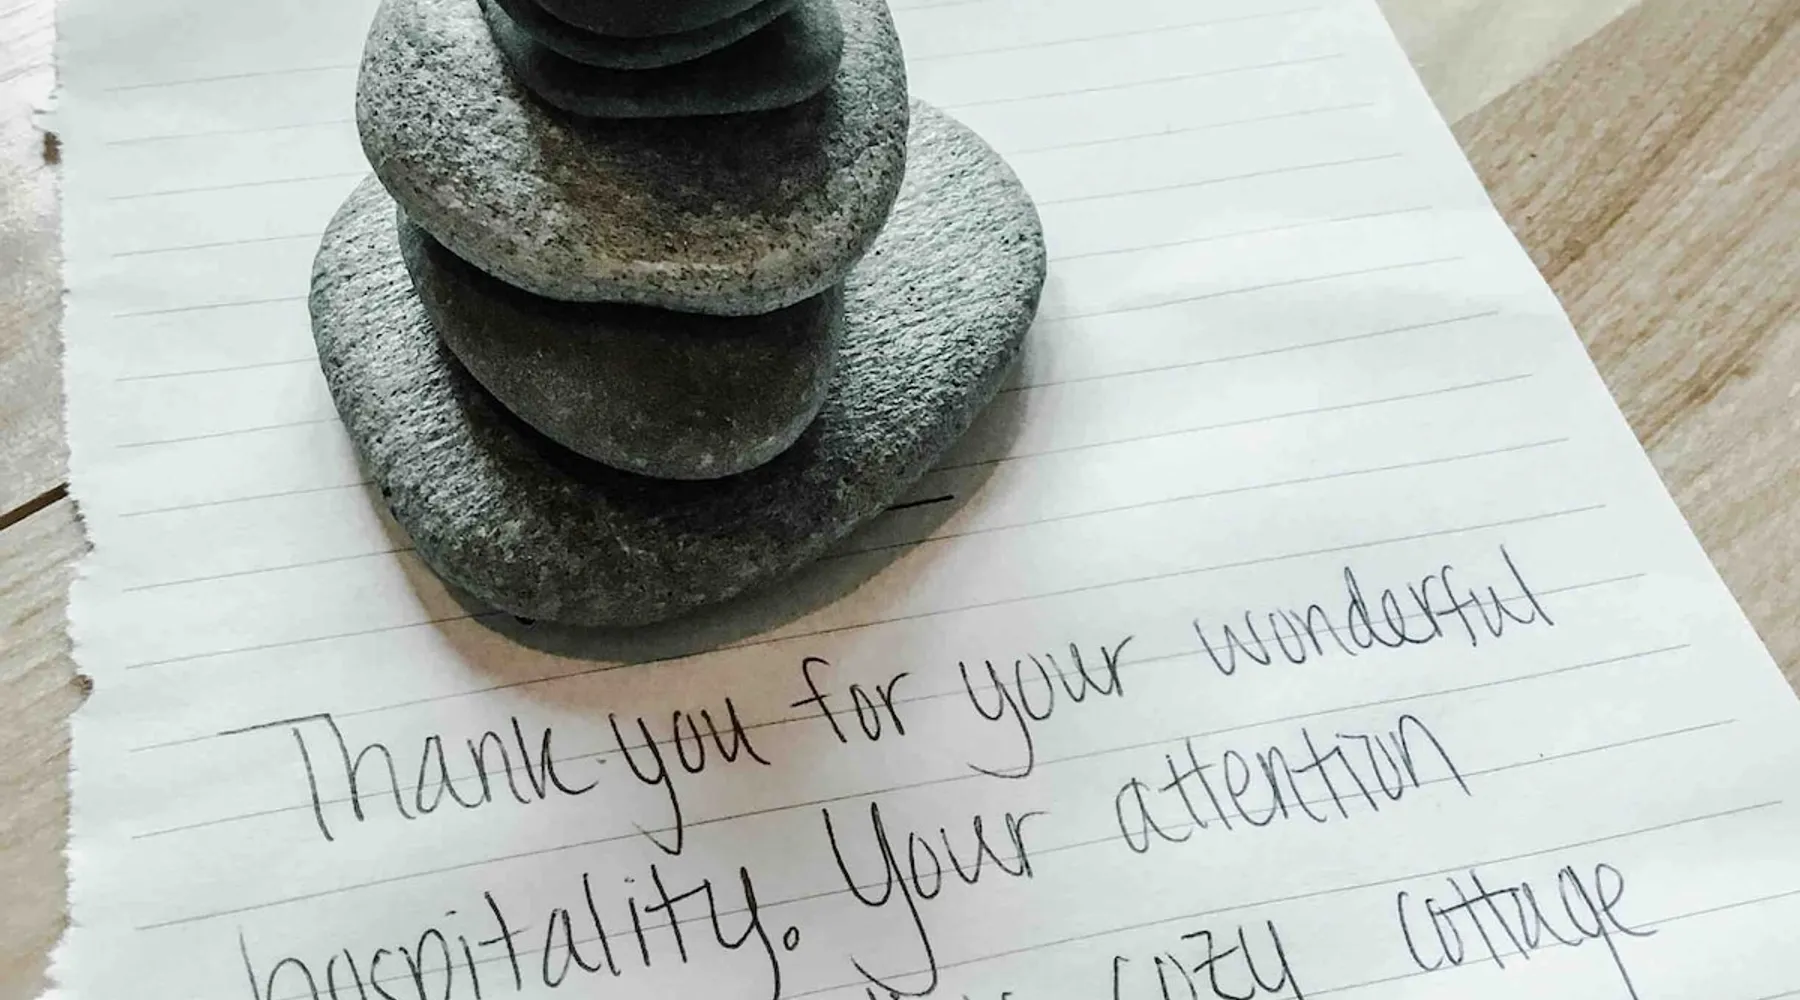 Thank you for your wonderful
hospitality. Your attention
cozy cottage